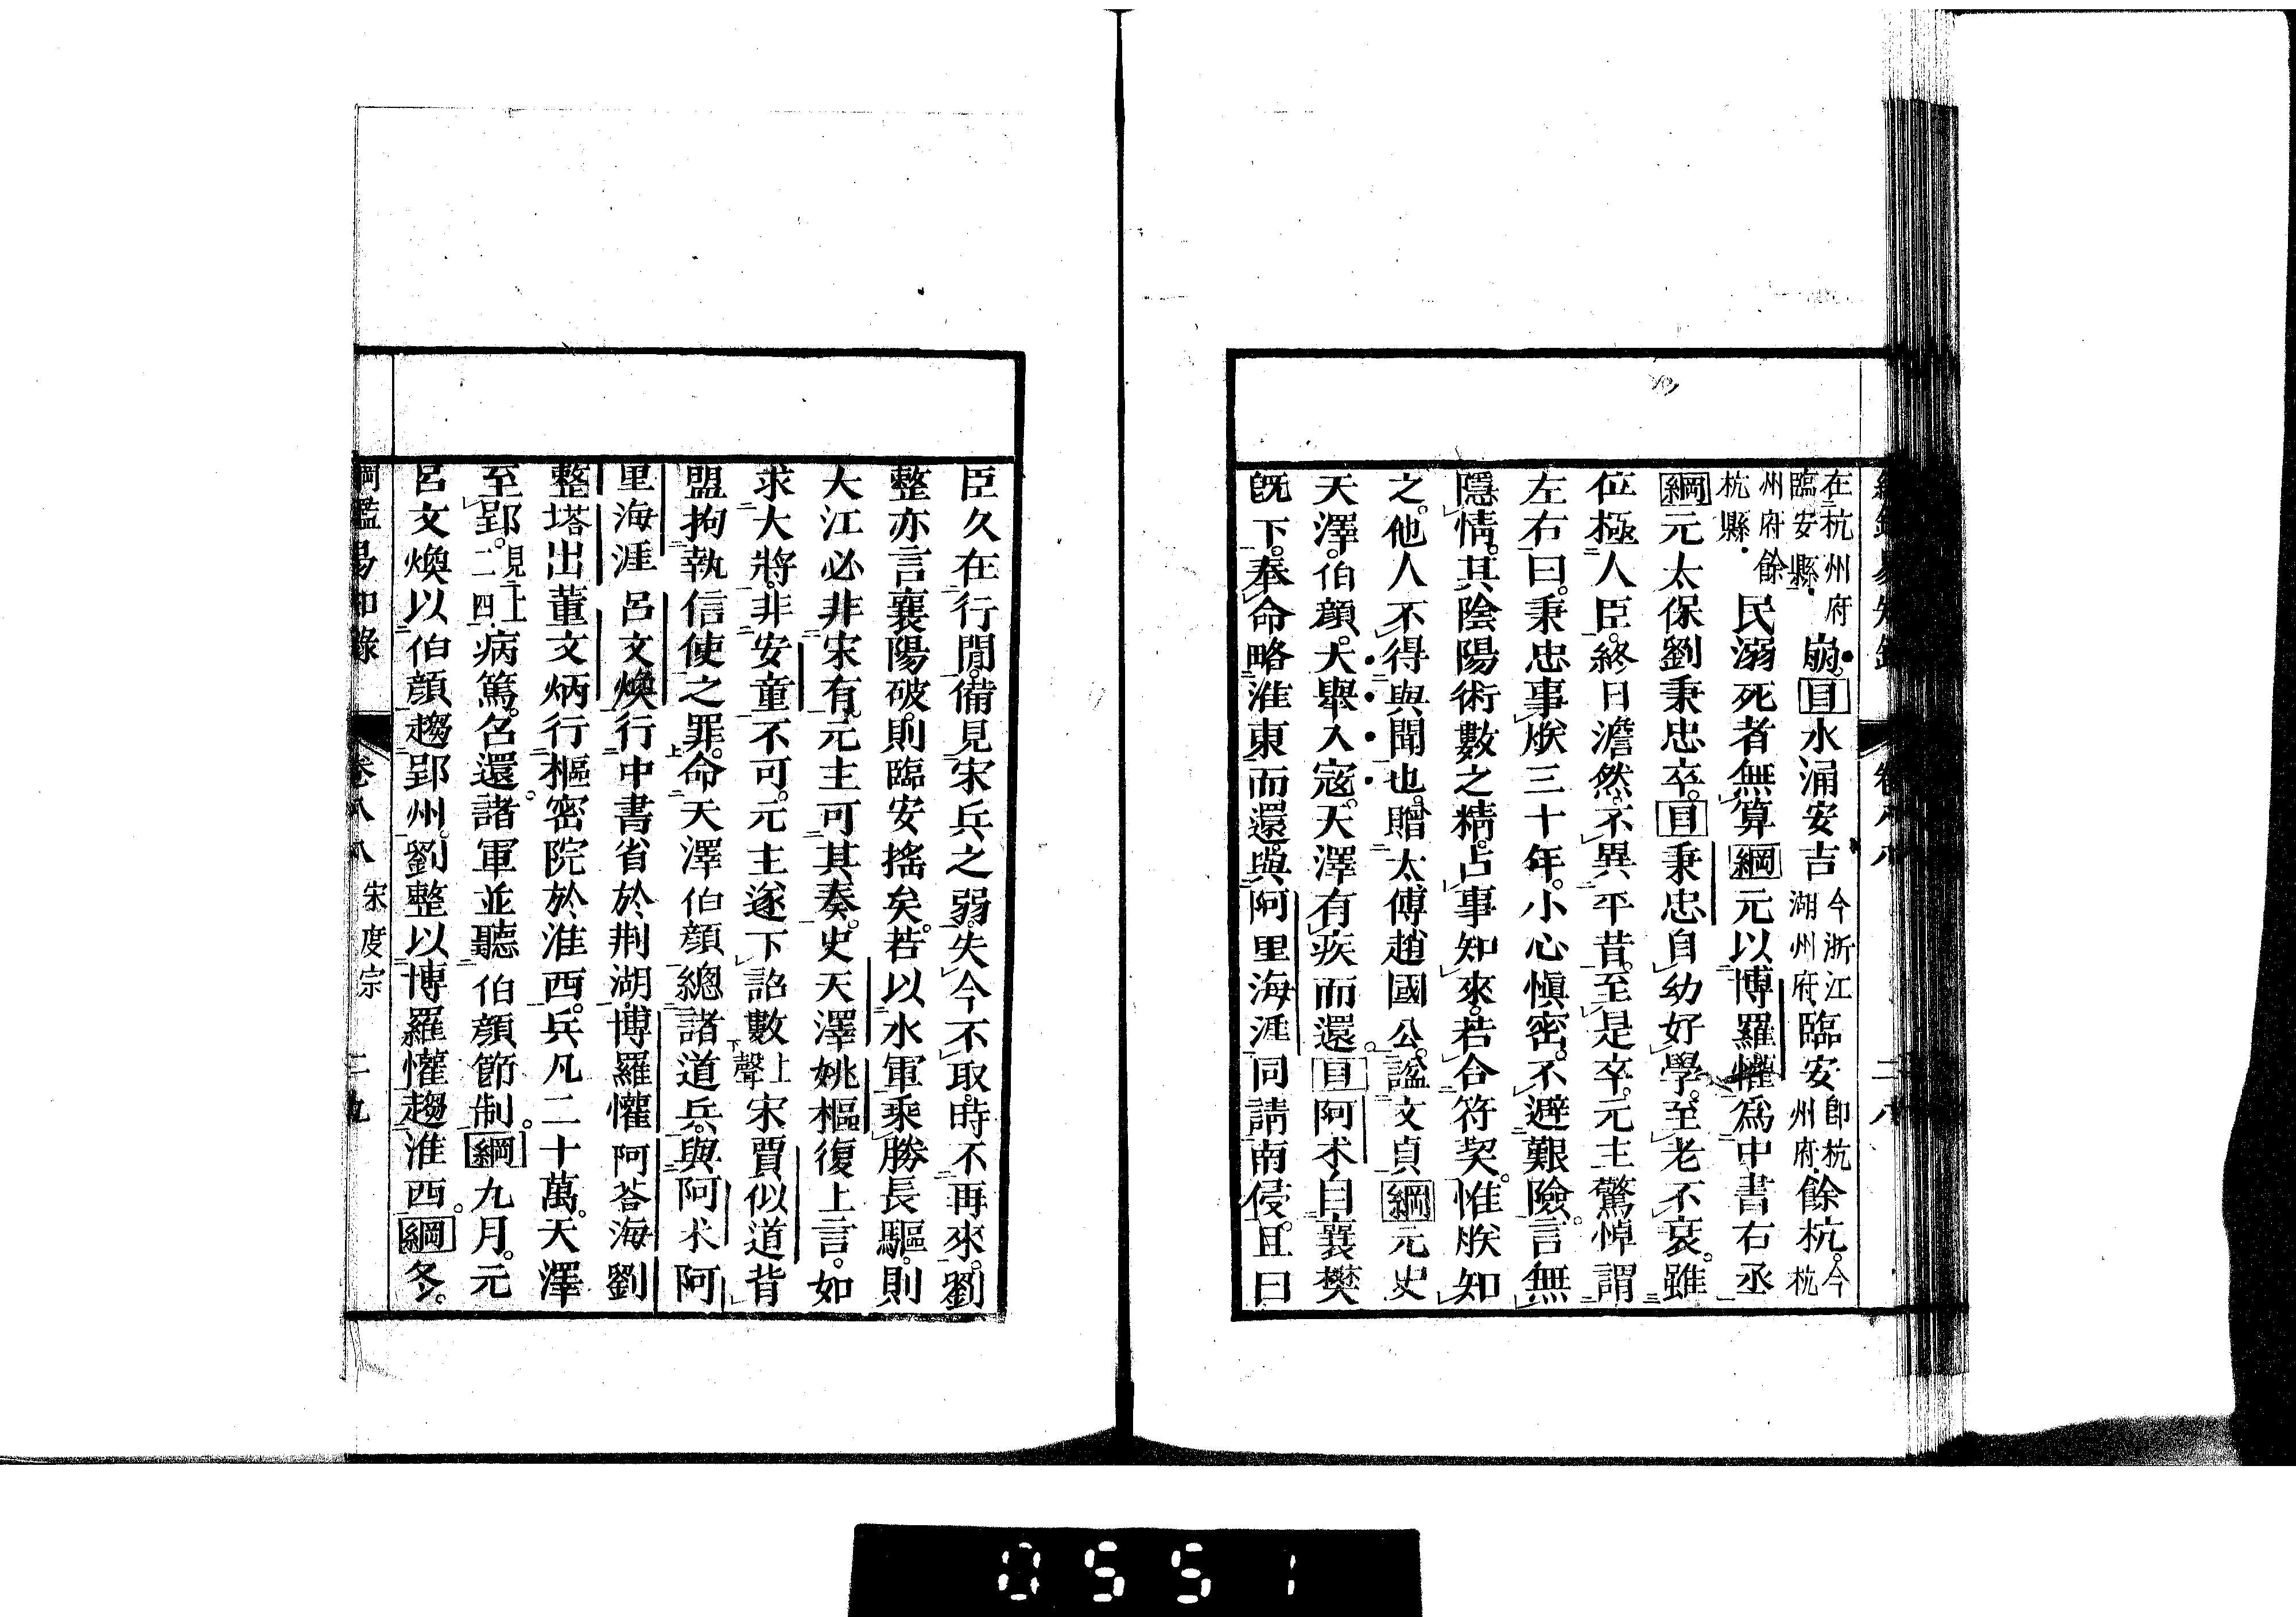 在杭州府
臨安縣崩。目水涌安吉今浙江
湖州府臨安卽杭
州府餘杭今杭
州府餘
杭縣民溺死者無算綱元以博羅懽爲中書右丞
綱元太保劉秉忠卒。目秉忠自幼好學。至老不衰。雖
位極人臣。終日澹然。不異平昔。至是卒。元主驚悼謂
左右曰。秉忠事朕三十年。小心愼密。不避艱險。言無
隱情。其陰陽術數之精。占事知來。若合符契。惟朕知
之。他人不得與聞也。贈太傅趙國公。謚文貞綱元史
天澤。伯顏。大舉入寇。天澤有疾而還。目阿朮自襄樊
旣下。奉命略淮東而還。與阿里海涯同請南侵。且曰
臣久在行閒。備見宋兵之弱。失今不取。時不再來。劉
整亦言襄陽破。則臨安搖矣。若以水軍乘勝長驅。則
大江必非宋有。元主可其奏。史天澤姚樞復上言。如
求大將。非安童不可。元主遂下詔數上
聲宋賈似道背
盟拘執信使之罪。命天澤伯顏總諸道兵。與阿朮阿
里海涯呂文煥行中書省於荆湖。博羅懽阿荅海劉
整塔出董文炳行樞密院於淮西。兵凡二十萬。天澤
至郢。見上
二四病篤。召還。諸軍並聽伯顏節制。綱九月。元
呂文煥以伯顏趨郢州。劉整以博羅懽趨淮西。綱冬。
綱鑑易知錄 卷八八 宋度宗 二九
0551